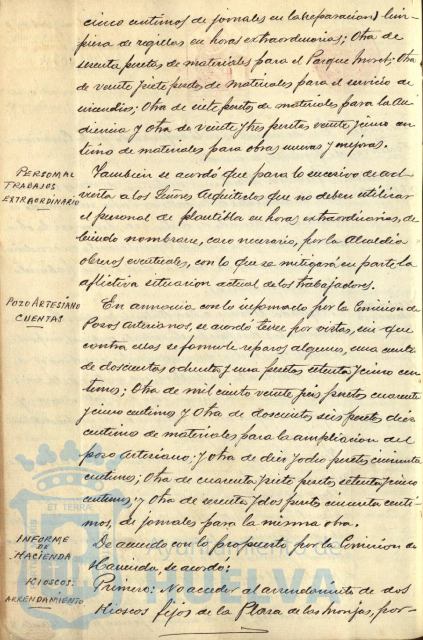 cinco centimos de jornales en la reparacion y lim-
pieza de regillas en horas extraordinarias; Otra de
sesenta pesetas de materiales para el Parque Moret; Otra
de veinte y siete pesetas de materiales para el servicio de
incendios; Otra de siete pesetas de materiales para la Au-
diencia y otra de veinte y tres pesetas veinte y cinco cen-
timos de materiales para obras nuevas y mejoras.
PERSONAL
TRABAJOS
EXTRAORDINARIO
Tambien se acordó que para lo sucesivo se ad-
vierta a los Señores Arquitectos que no deben utilizar
el personal de plantilla en horas extraordinarias, de-
biendo nombrarse, caso necesario, por la Alcaldia
obreros eventuales, con lo que se mitigará en parte la
aflictiva situacion actual de los trabajadores.
POZO ARTESIANO
CUENTAS
En armonia con lo informado por la Comision de
Pozos artesianos, se acordó tener por vistas, sin que
contra ellas se formule reparos alguno, una cuenta
de doscientas ochenta y una pesetas setenta y cinco cen-
timos; Otra de mil ciento veinte y seis pesetas cuarenta
y cinco centimos y Otra de doscientos seis pesetas diez
centimos de materiales para la ampliacion del
pozo artesiano; y otra de diez y ocho pesetas cincuenta
centimos; Otra de cuarenta y siete pesetas setenta y cinco
centimos; y Otra de sesenta y dos pesetas cincuenta centi-
mos, de jornales para la misma obra.
INFORME
DE
HACIENDA
KIOSCOS.
ARRENDAMIENTO
De acuerdo con lo propuesto por la Comision de
Hacienda, se acordó:
Primero: No acceder al arrendamiento de dos
Kioscos fijos de la Plaza de las Monjas, por-
ET TERRA
Ayuntamiento de
HUELVA